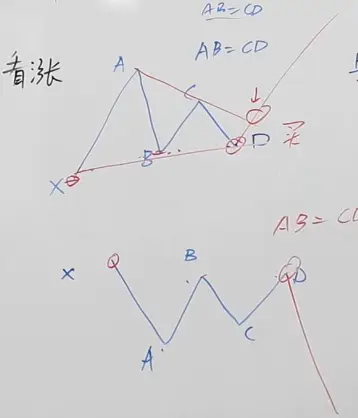 AB=CD
AB=CD
看涨
A
C
B
D
买
X
AB=CD
X
B
D
A
C